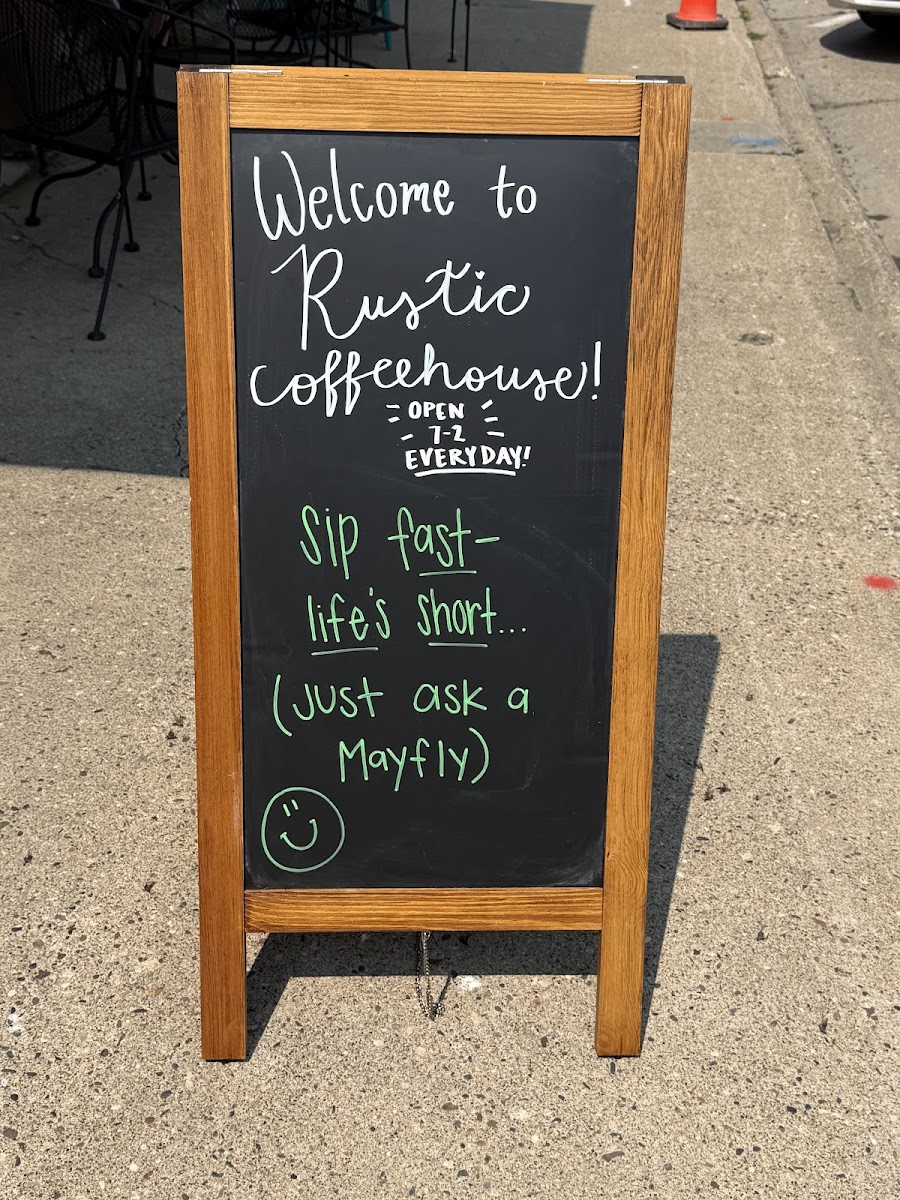 Welcome to
Rustic
coffeehouse!
OPEN
7-2
EVERYDAY!
Sip fast-
life's short...
(Just ask a
Mayfly)